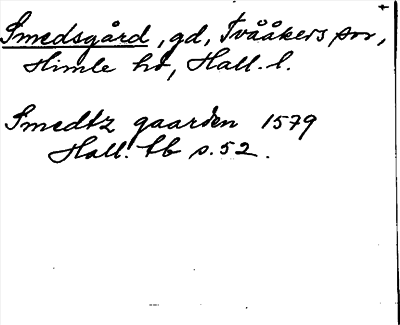 Smedsgård, gd, Tvååkers sn,
Himle hd, Hall. l.
Smedtz gaarden 1579
Hall. tb s. 52.